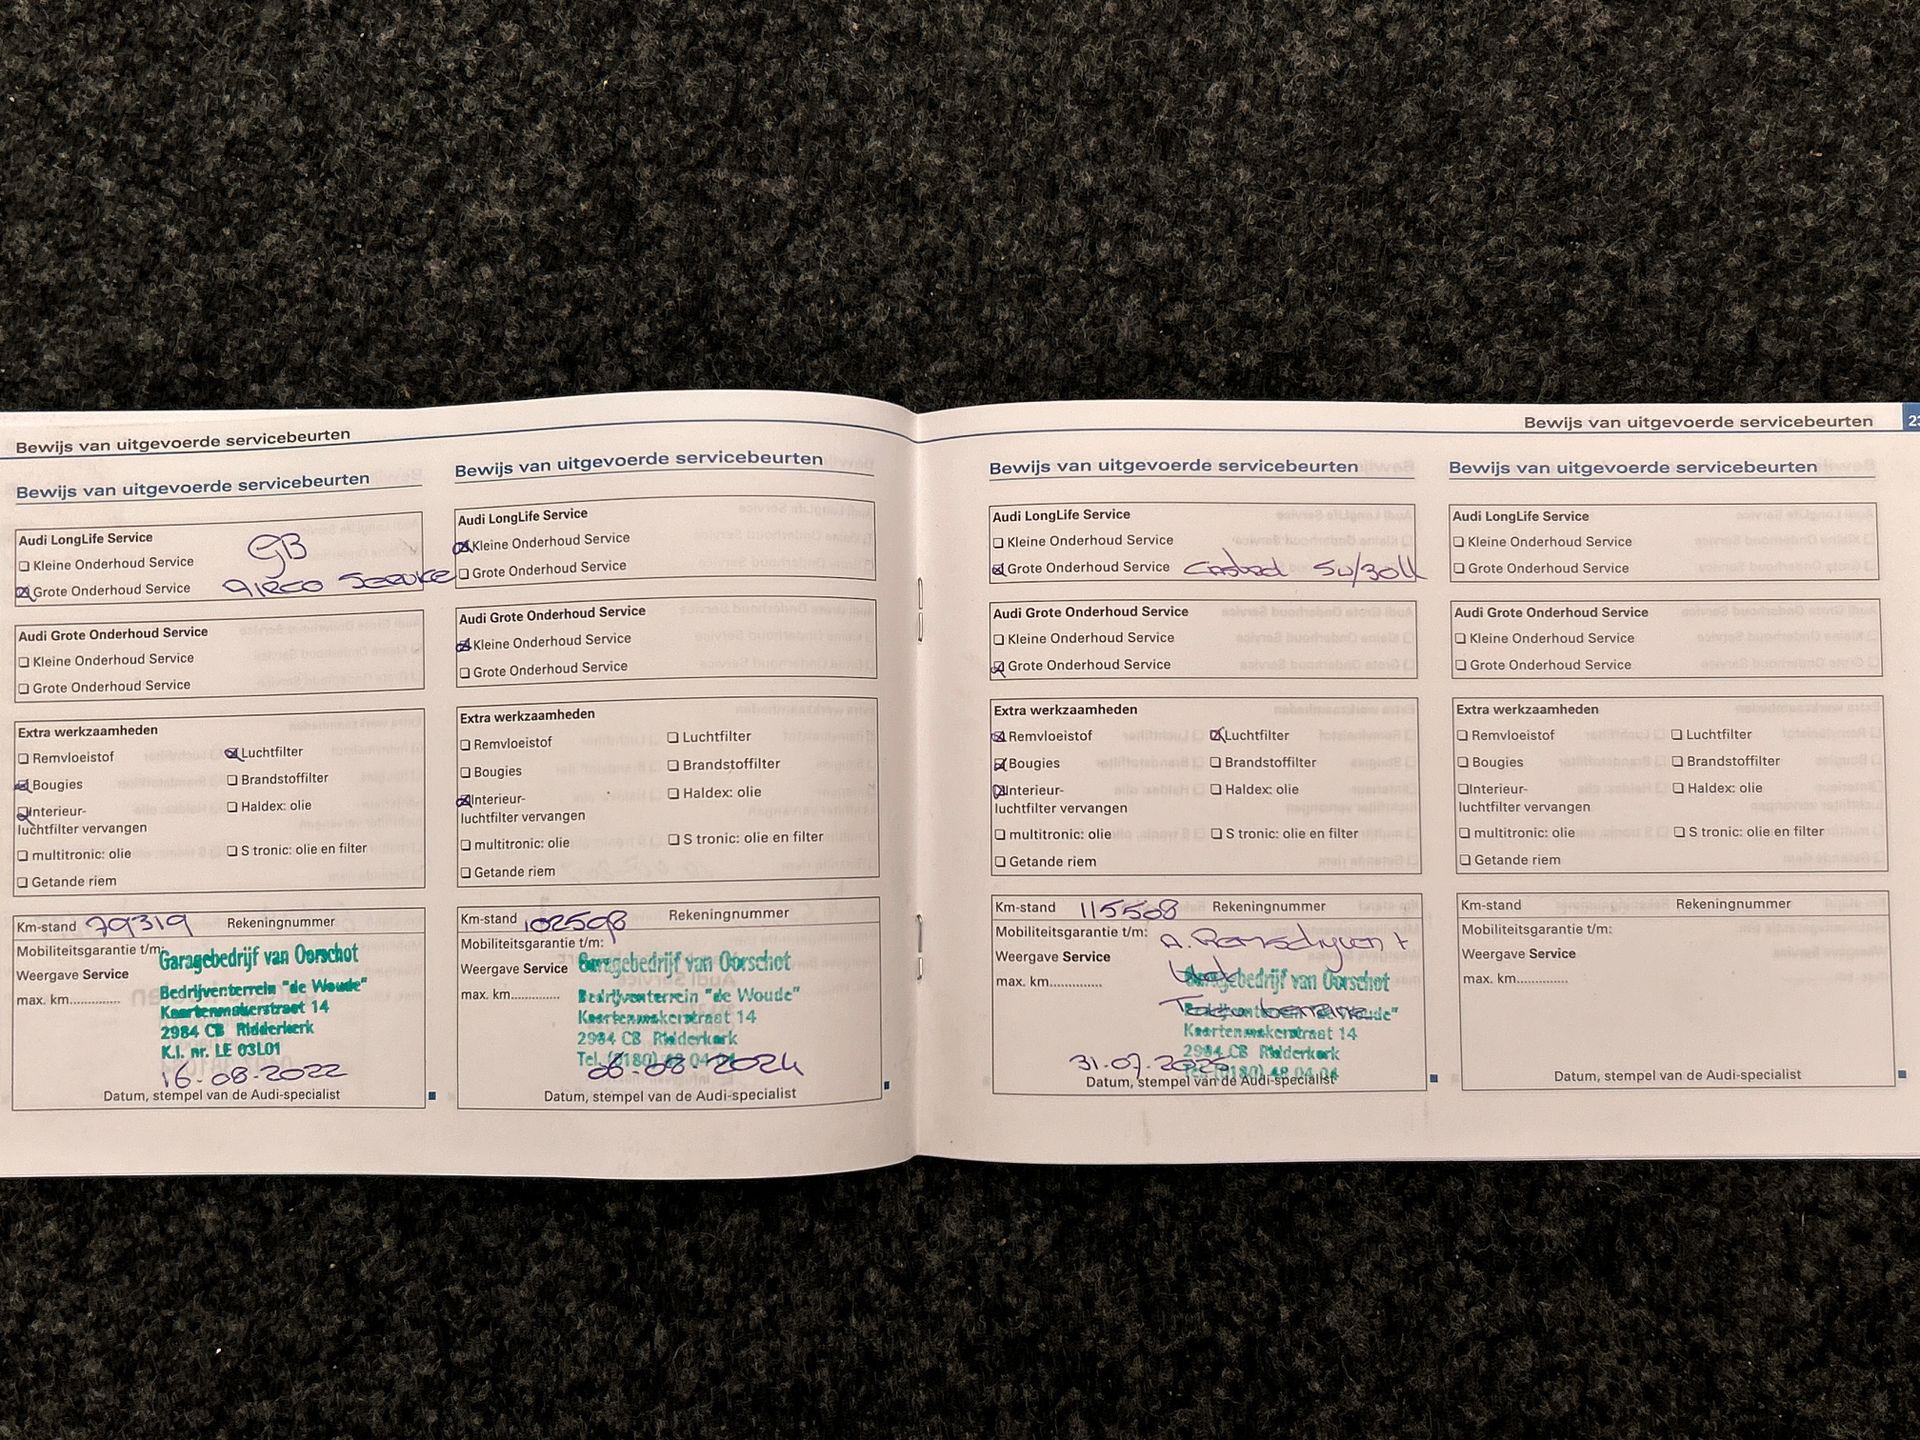 Bewijs van uitgevoerde servicebeurten
Bewijs van uitgevoerde servicebeurten
Audi LongLife Service
GB
Kleine Onderhoud Service
Grote Onderhoud Service
Airco Service
Audi Grote Onderhoud Service
Kleine Onderhoud Service
Grote Onderhoud Service
Extra werkzaamheden
Remvloeistof
Luchtfilter
Bougies
Brandstoffilter
Interieur-
luchtfilter vervangen
Haldex: olie
multitronic: olie
S tronic: olie en filter
Getande riem
Km-stand 79319 Rekeningnummer
Mobiliteitsgarantie t/m:
Weergave Service
max. km..............
Garagebedrijf van Oorschot
Bedrijventerrein "de Woude"
Kaartenmakerstraat 14
2984 CB Ridderkerk
K.I. nr. LE 03L01
16-08-2022
Datum, stempel van de Audi-specialist
Bewijs van uitgevoerde servicebeurten
Audi LongLife Service
Kleine Onderhoud Service
Grote Onderhoud Service
Audi Grote Onderhoud Service
Kleine Onderhoud Service
Grote Onderhoud Service
Extra werkzaamheden
Remvloeistof
Luchtfilter
Bougies
Brandstoffilter
Interieur-
luchtfilter vervangen
Haldex: olie
multitronic: olie
S tronic: olie en filter
Getande riem
Km-stand 102598 Rekeningnummer
Mobiliteitsgarantie t/m:
Weergave Service
max. km..............
Garagebedrijf van Oorschot
Bedrijventerrein "de Woude"
Kaartenmakerstraat 14
2984 CB Ridderkerk
Tel. (0180) 48 04 04
06-08-2024
Datum, stempel van de Audi-specialist
Bewijs van uitgevoerde servicebeurten
23
Bewijs van uitgevoerde servicebeurten
Audi LongLife Service
Kleine Onderhoud Service
Grote Onderhoud Service
Audi Grote Onderhoud Service
Kleine Onderhoud Service
Grote Onderhoud Service
Extra werkzaamheden
Remvloeistof
Luchtfilter
Bougies
Brandstoffilter
Interieur-
luchtfilter vervangen
Haldex: olie
multitronic: olie
S tronic: olie en filter
Getande riem
Km-stand 115508 Rekeningnummer
Mobiliteitsgarantie t/m:
Weergave Service
max. km..............
A. Remschijven +
Garagebedrijf van Oorschot
Bedrijventerrein "de Woude"
Kaartenmakerstraat 14
2984 CB Ridderkerk
Tel. (0180) 48 04 04
31-07-2025
Datum, stempel van de Audi-specialist
Bewijs van uitgevoerde servicebeurten
Audi LongLife Service
Kleine Onderhoud Service
Grote Onderhoud Service
Audi Grote Onderhoud Service
Kleine Onderhoud Service
Grote Onderhoud Service
Extra werkzaamheden
Remvloeistof
Luchtfilter
Bougies
Brandstoffilter
Interieur-
luchtfilter vervangen
Haldex: olie
multitronic: olie
S tronic: olie en filter
Getande riem
Km-stand Rekeningnummer
Mobiliteitsgarantie t/m:
Weergave Service
max. km..............
Datum, stempel van de Audi-specialist